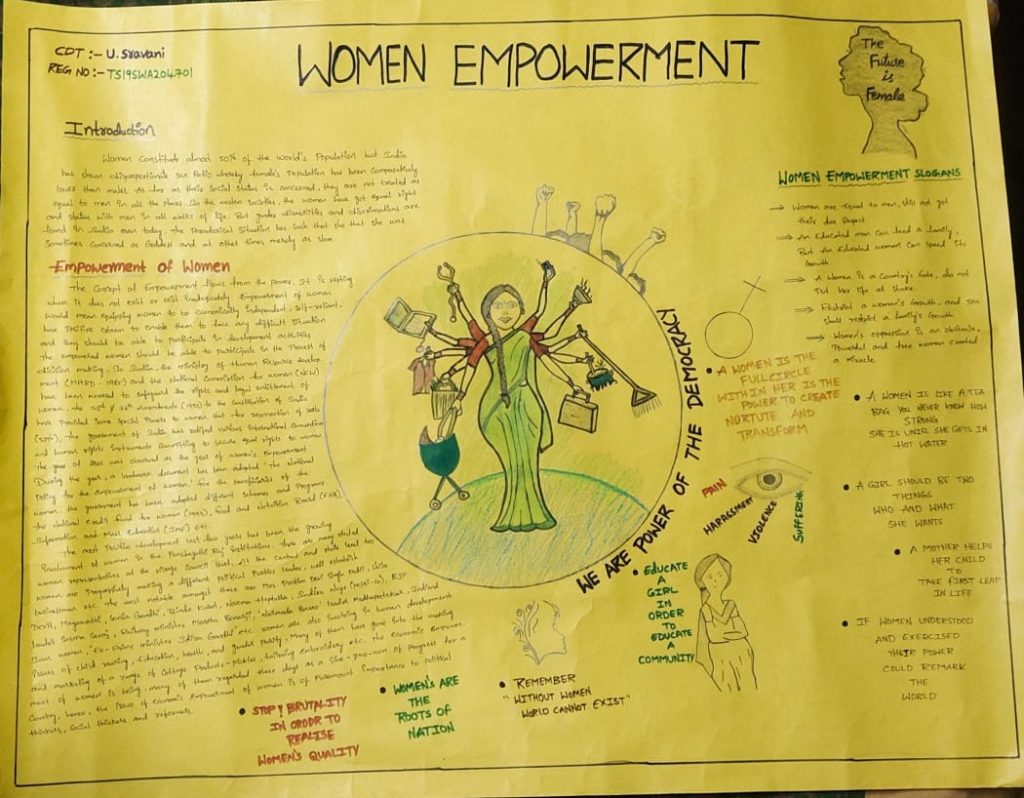 CDT :- U. Sravani
REG NO :- TS19SWA204701
WOMEN EMPOWERMENT
The
Future
is
Female
Introduction
Women constitute almost 50% of the world's Population but India
has shown disproportionate sex Ratio whereby female's Population has been comparatively
lower than males. As far as their Social status is concerned, they are not treated as
equal to men in all the places. In the western Societies, the women have got equal right
and status with men in all walks of life. But gender disabilities and discriminations are
found in India even today. The Paradoxical Situation has such that she that she was
Sometimes concerned as Goddess and at other times merely as slave.
Empowerment of Women
The concept of Empowerment flows from the power. It is vesting
where it does not exist or exist inadequately. Empowerment of women
would mean equipping women to be economically independent, self-reliant,
have Positive esteem to enable them to face any difficult situation
and they should be able to participate in development activities.
The empowered women should be able to participate in the Process of
decision making. In India, the ministry of Human Resource develop-
ment (MHRD - 1985) and the National Commission for women (NCW)
have been worked to safeguard the rights and legal entitlement of
women. The 73rd & 74th Amendments (1993) to the Constitution of India
have Provided some special Powers to women that for reservation of seats
the government of India has ratified various International conventions
and human rights instruments committing to secure equal rights to women
The year of 2001 was observed as the year of women's Empowerment
During the year, a landmark document has been adopted 'the National
Policy for the empowerment of women.' for the beneficiaries of the
women, the government has been adopted different Schemes and Programs,
the National credit fund for women (1993), Food and Nutrition Board (FNB),
Information and Mass Education (IME) etc.
The most Positive development last few years has been the growing
Involvement of women in the Panchayati Raj Institutions. There are many elected
women representatives at the village council level. At the central and state level too
women are Progressively making a different Political Parties leader, well establish
businesswomen etc. The most notable amongst these are Mrs Pratibha Devi Singh Patil, Shila
Dexit, Mayawathi, Sonia Gandhi, Brinda Karat, Najma Heptulla, Indira Nuye (pepsi-co), BJP
leader Susma Swraj, Railway minister Mamta Benarji, 'Narmada Bachao' leader Medhapatekar, Indian
Iron women, Ex-Prime minister Indira Gandhi etc. women are also involving in human development
issues of child rearing, Education, health, and gender parity. Many of them have gone into the making
and marketing of a range of cottage Products-pickles, tailoring embroidery etc. The economic empower-
ment of women is being many of them regarded these days as a sine-quo-non of Progress for a
country, hence, the issue of economic Empowerment of women is of Paramount importance to political
thinkers, social thinkers and reformers.
WOMEN EMPOWERMENT SLOGIANS
→ Women are equal to men, still not got
their due Respect
→ An Educated man can lead a family,
But An educated women can speed its
Growth
→ A Women is a Country's fate, do not
Put her life at stake.
→ Restrict a women's Growth, and you
shall restrict a family's Growth
→ Women's oppression is an obstacle,
Powerful and free women created
a miracle.
WE ARE POWER OF THE DEMOCRACY
• A WOMEN IS THE
FULL CIRCLE
WITHIN HER IS THE
POWER TO CREATE
NORTUTE AND
TRANSFORM
• A WOMEN IS LIKE A TEA
BAG YOU NEVER KNOW HOW
STRONG
SHE IS UNIL SHE GETS IN
HOT WATER
PAIN
HARASSMENT
VIOLENCE
SUFFERING
• A GIRL SHOULD BE TWO
THINGS
WHO AND WHAT
SHE WANTS
• A MOTHER HELPS
HER CHILD
TO
TAKE FIRST LEAP
IN LIFE
• EDUCATE
A
GIRL
IN
ORDER
TO
EDUCATE
A
COMMUNITY
• IF WOMEN UNDERSTOOD
AND EXERCISED
THEIR POWER
COULD REMARK
THE
WORLD
• STOP! BRUTALITY
IN ORODR TO
REALISE
WOMEN'S QUALITY
• WOMEN'S ARE
THE
ROOTS OF
NATION
• REMEMBER
"WITHOUT WOMEN
WORLD CANNOT EXIST"